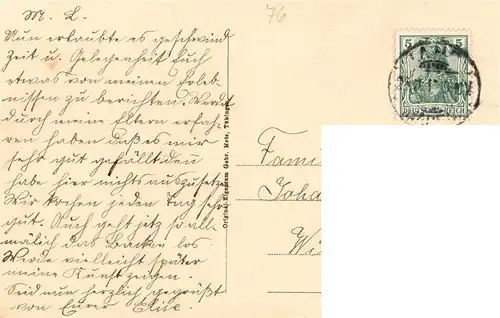 M. L.
Nun erlaubte es geschwind
Zeit u. Gelegenheit Euch
etwas von meinen Erleb-
nissen zu berichten. Werdet
durch meine Eltern erfah-
ren haben daß es mir
sehr gut gefällt denn
habe hier nichts auszusetzen
Wir kochen jeden Tag sehr
gut. Auch geht jetz so all-
mälich das Backen los.
Werde vielleicht später
meine Kunst zeigen.
Seid nun herzlich gegrüßt
von Eurer Elise.
76
Original-Eigentum Gebr. Metz, Tübingen
5 5
DEUTSCHES REICH
Fami
Joha